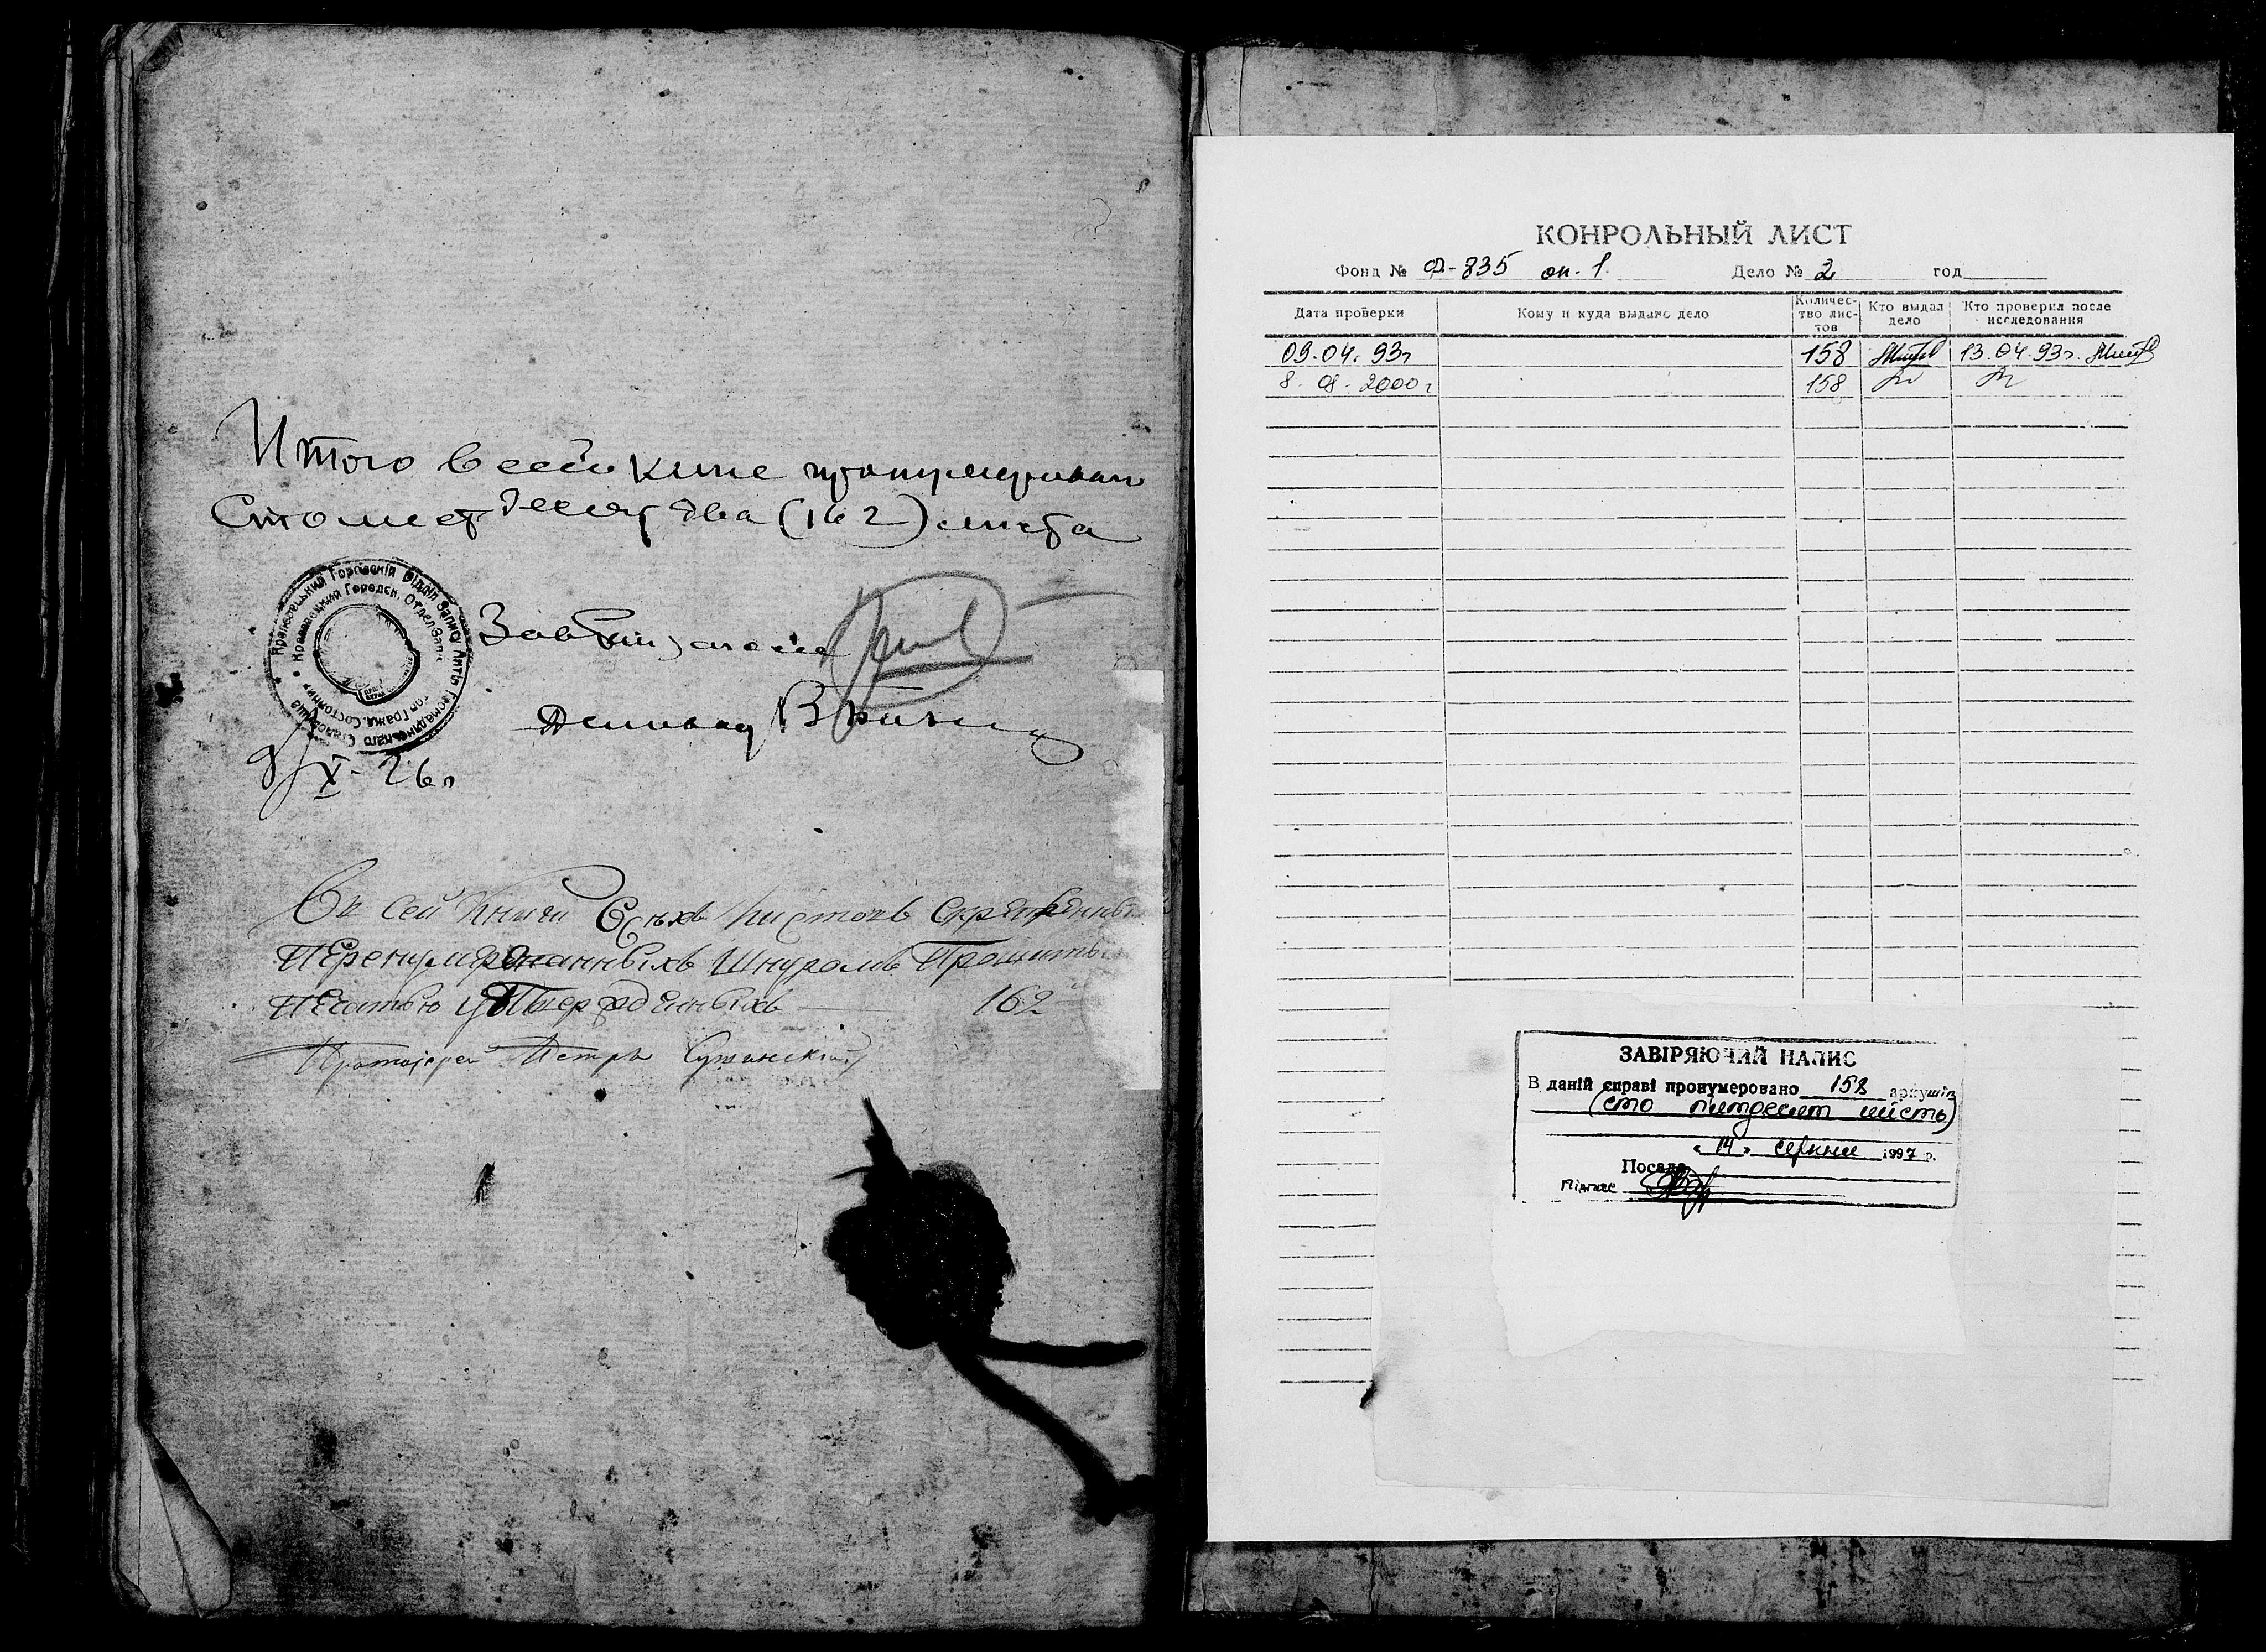 Итого в сей книге пронумерован
Стошестдесят два (162) листа
Кролевецький Городскій Відділ Запису Актів Громадянського Стану
Кролевецкий Городск. Отдел Запис Гражд. Состояния
Зав
Деловод
9/X-26 г
Въ сей Книги Всѣхъ листовъ Скрепленныхъ
Перенумерованныхъ Шнуромъ Прошиты
Печатью утвержденныхъ — 162
Протоіерей Петръ
КОНРОЛЬНЫЙ ЛИСТ
Фонд № Ф-835 оп. 1. Дело № 2 год
Дата проверки Кому и куда выдано дело Количес-тво лис-тов Кто выдал дело Кто проверил после исследования
09.04.93г 158 13.04.93г.
8.08.2000г 158
ЗАВІРЯЮЧИЙ НАПИС
В даній справі пронумеровано 158 аркушів
(сто пятдесят шість)
« 14 » серпня 1997 р.
Посада
Підпис